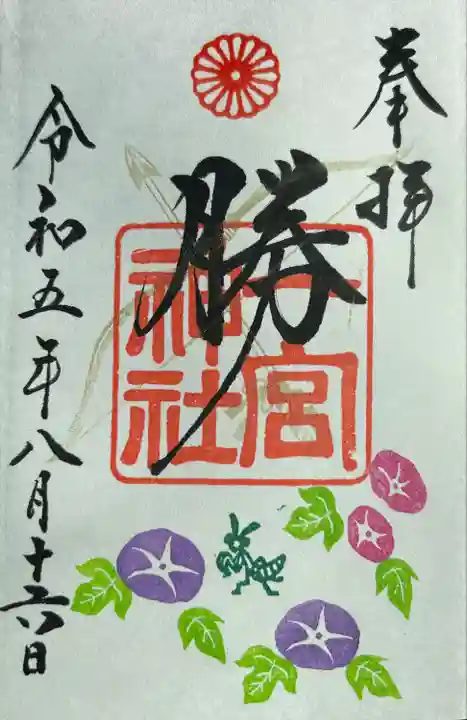 奉拝
勝
一宮
神社
令和五年八月十六日